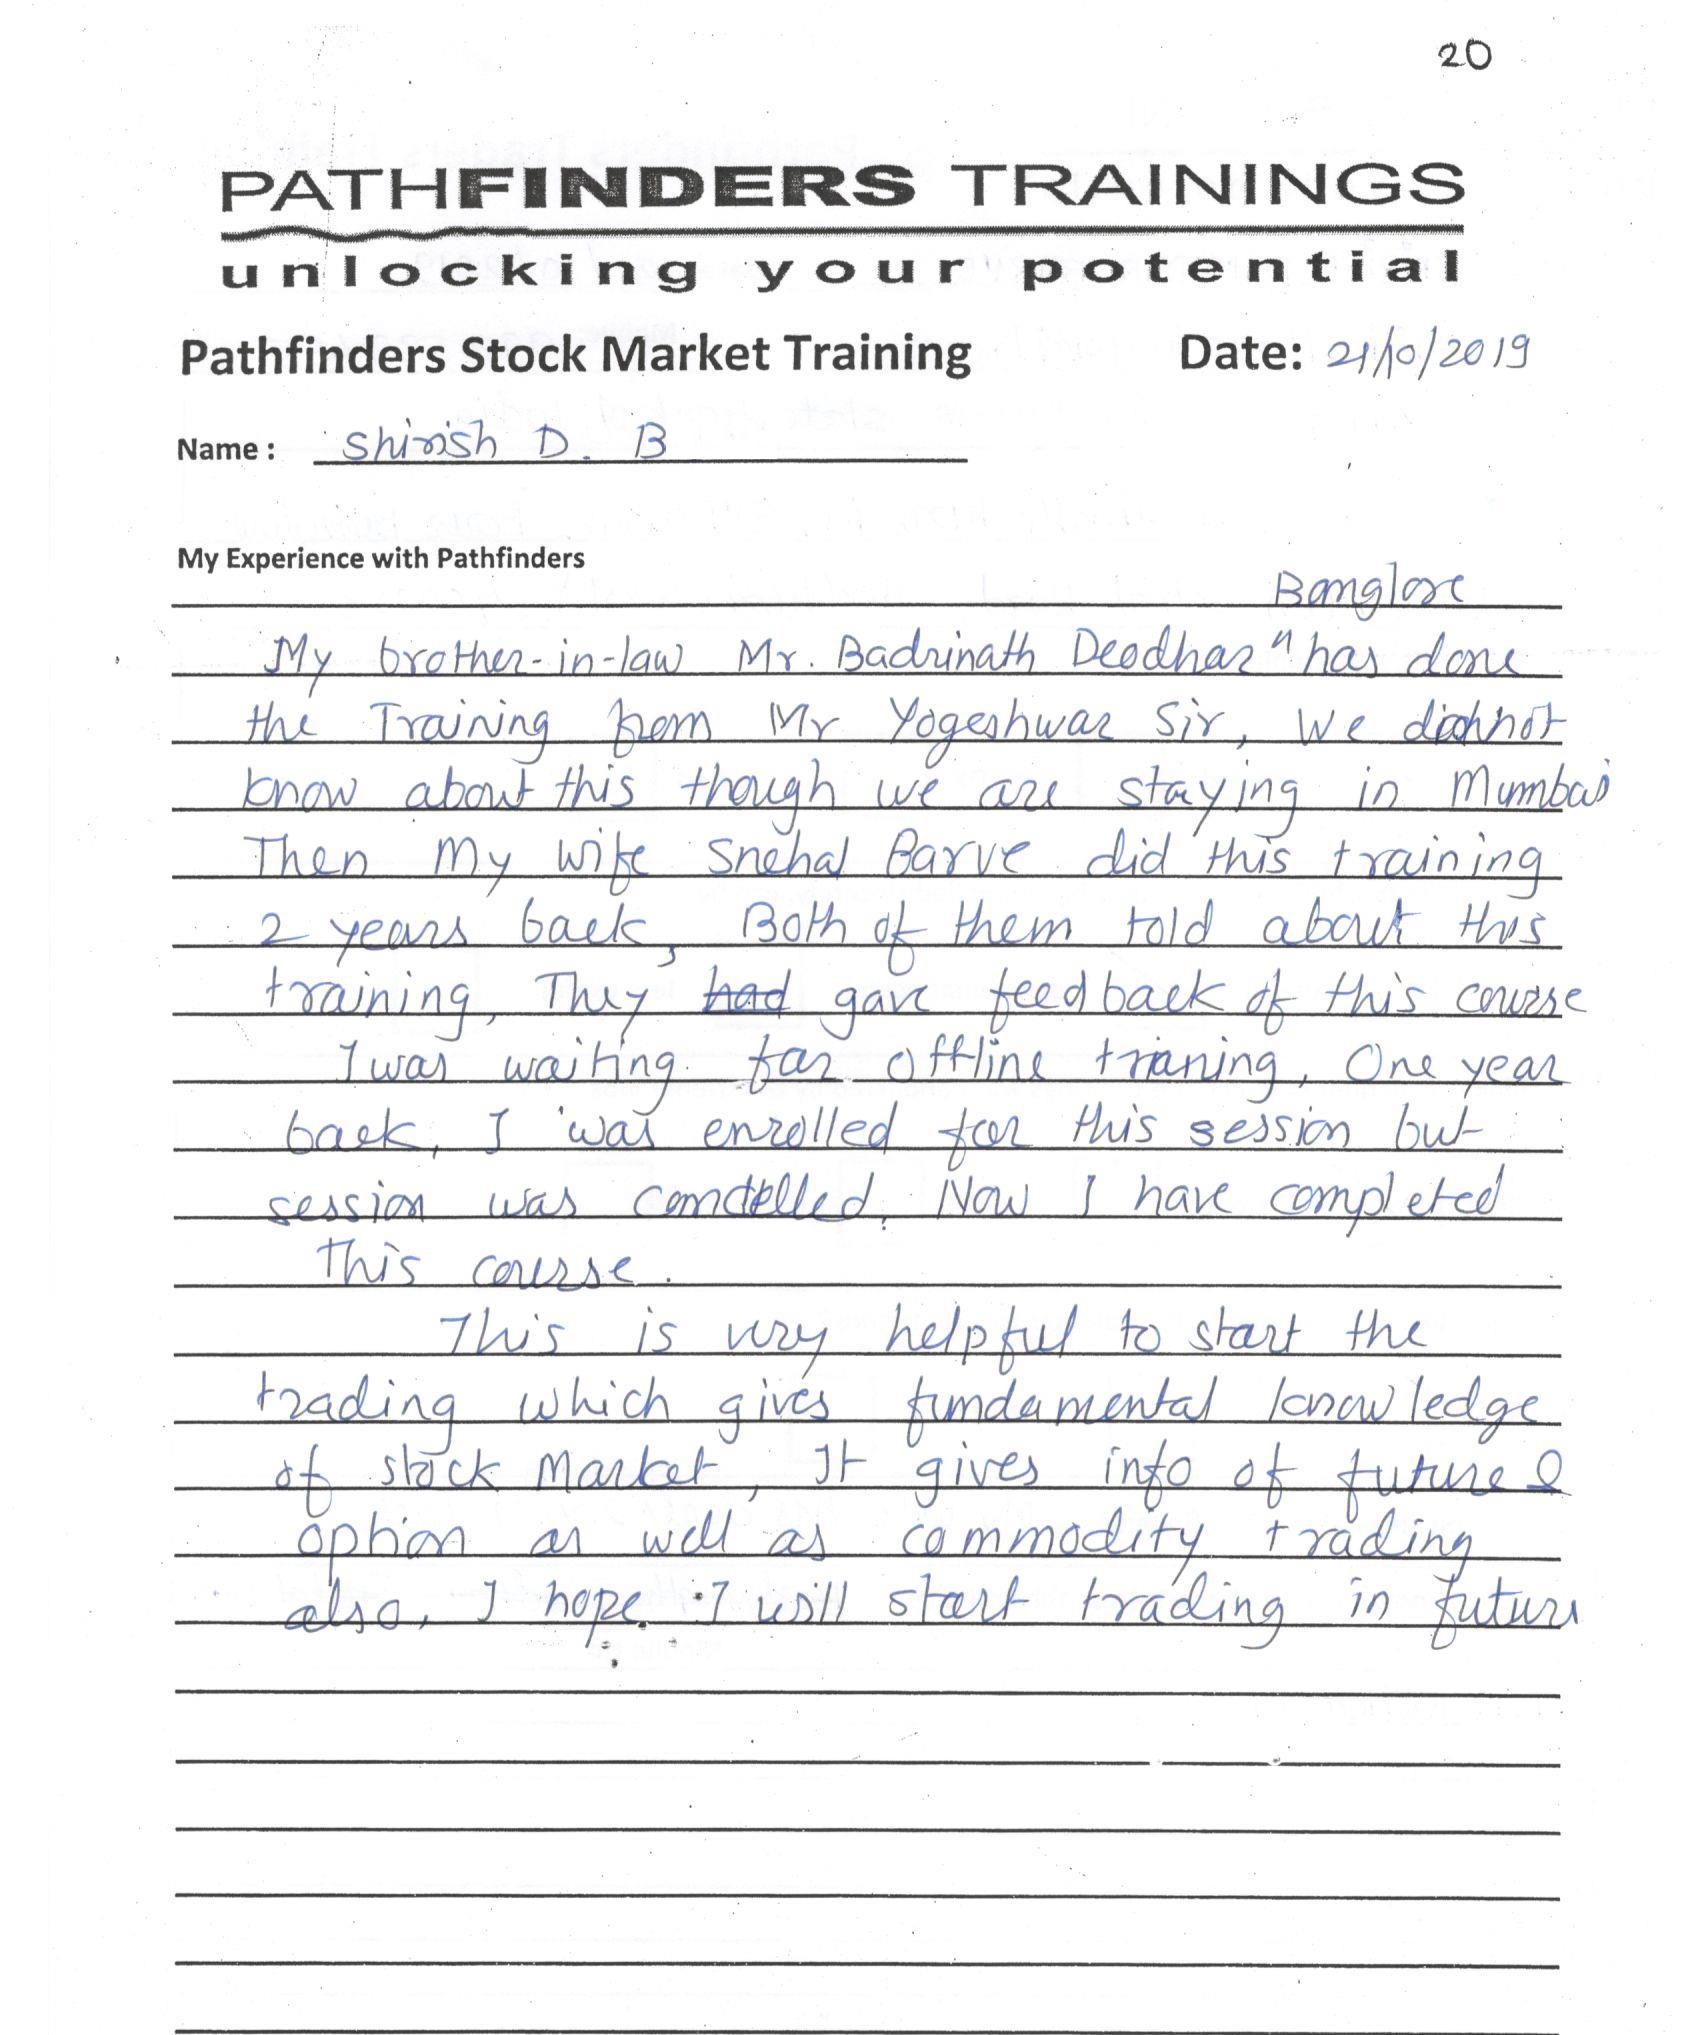 20
PATHFINDERS TRAININGS
unlocking your potential
Pathfinders Stock Market Training Date: 21/10/2019
Name : Shirish D. B
My Experience with Pathfinders
Banglore
My brother-in-law Mr. Badrinath Deodhar " has done
the Training from Mr Yogeshwar Sir, We did not
know about this though we are staying in Mumbai
Then My wife Snehal Barve did this training
2 years back, Both of them told about this
training, They had gave feedback of this course
I was waiting for offline trianing, One year
back, I was enrolled for this session but
session was canctelled. Now I have completed
This course.
This is very helpful to start the
trading which gives fundamental knowledge
of stock Market, It gives info of future &
option as well as commodity trading
also, I hope I will start trading in future